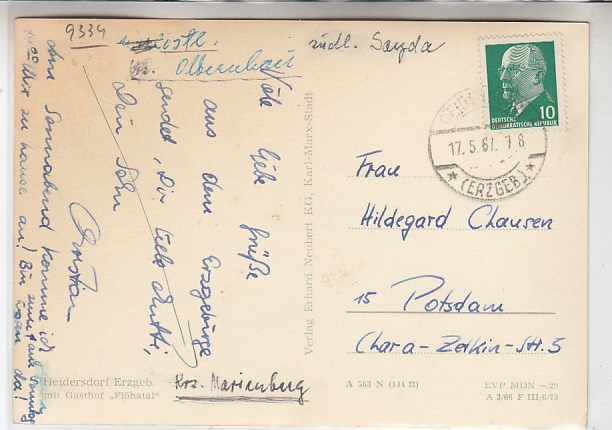 9334
östl.
Olbernhau
südl. Sayda
Viele liebe Grüße
aus dem Erzgebirge
sendet Dir, liebe Mutti,
Dein Sohn
Christian
Am Sonnabend komme ich
zu hause an! Bin zum
da!
Heidersdorf Erzgeb.
mit Gasthof „Flöhatal"
Krs. Marienberg
Verlag Erhard Neubert KG, Karl-Marx-Stadt
10
DEUTSCHE
DEMOKRATISCHE REPUBLIK
17.5.67.-7 8
(ERZGEB.)
Frau
Hildegard Clausen
15 Potsdam
Clara-Zetkin-Str. 5
A 563 N (111 B)
EVP MDN -.20
A 3/66 F III/6/73